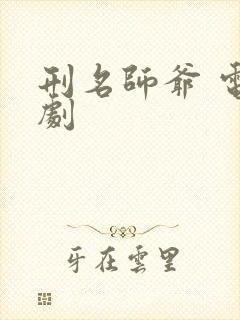 刑名師爺 電
劇
牙在雲里